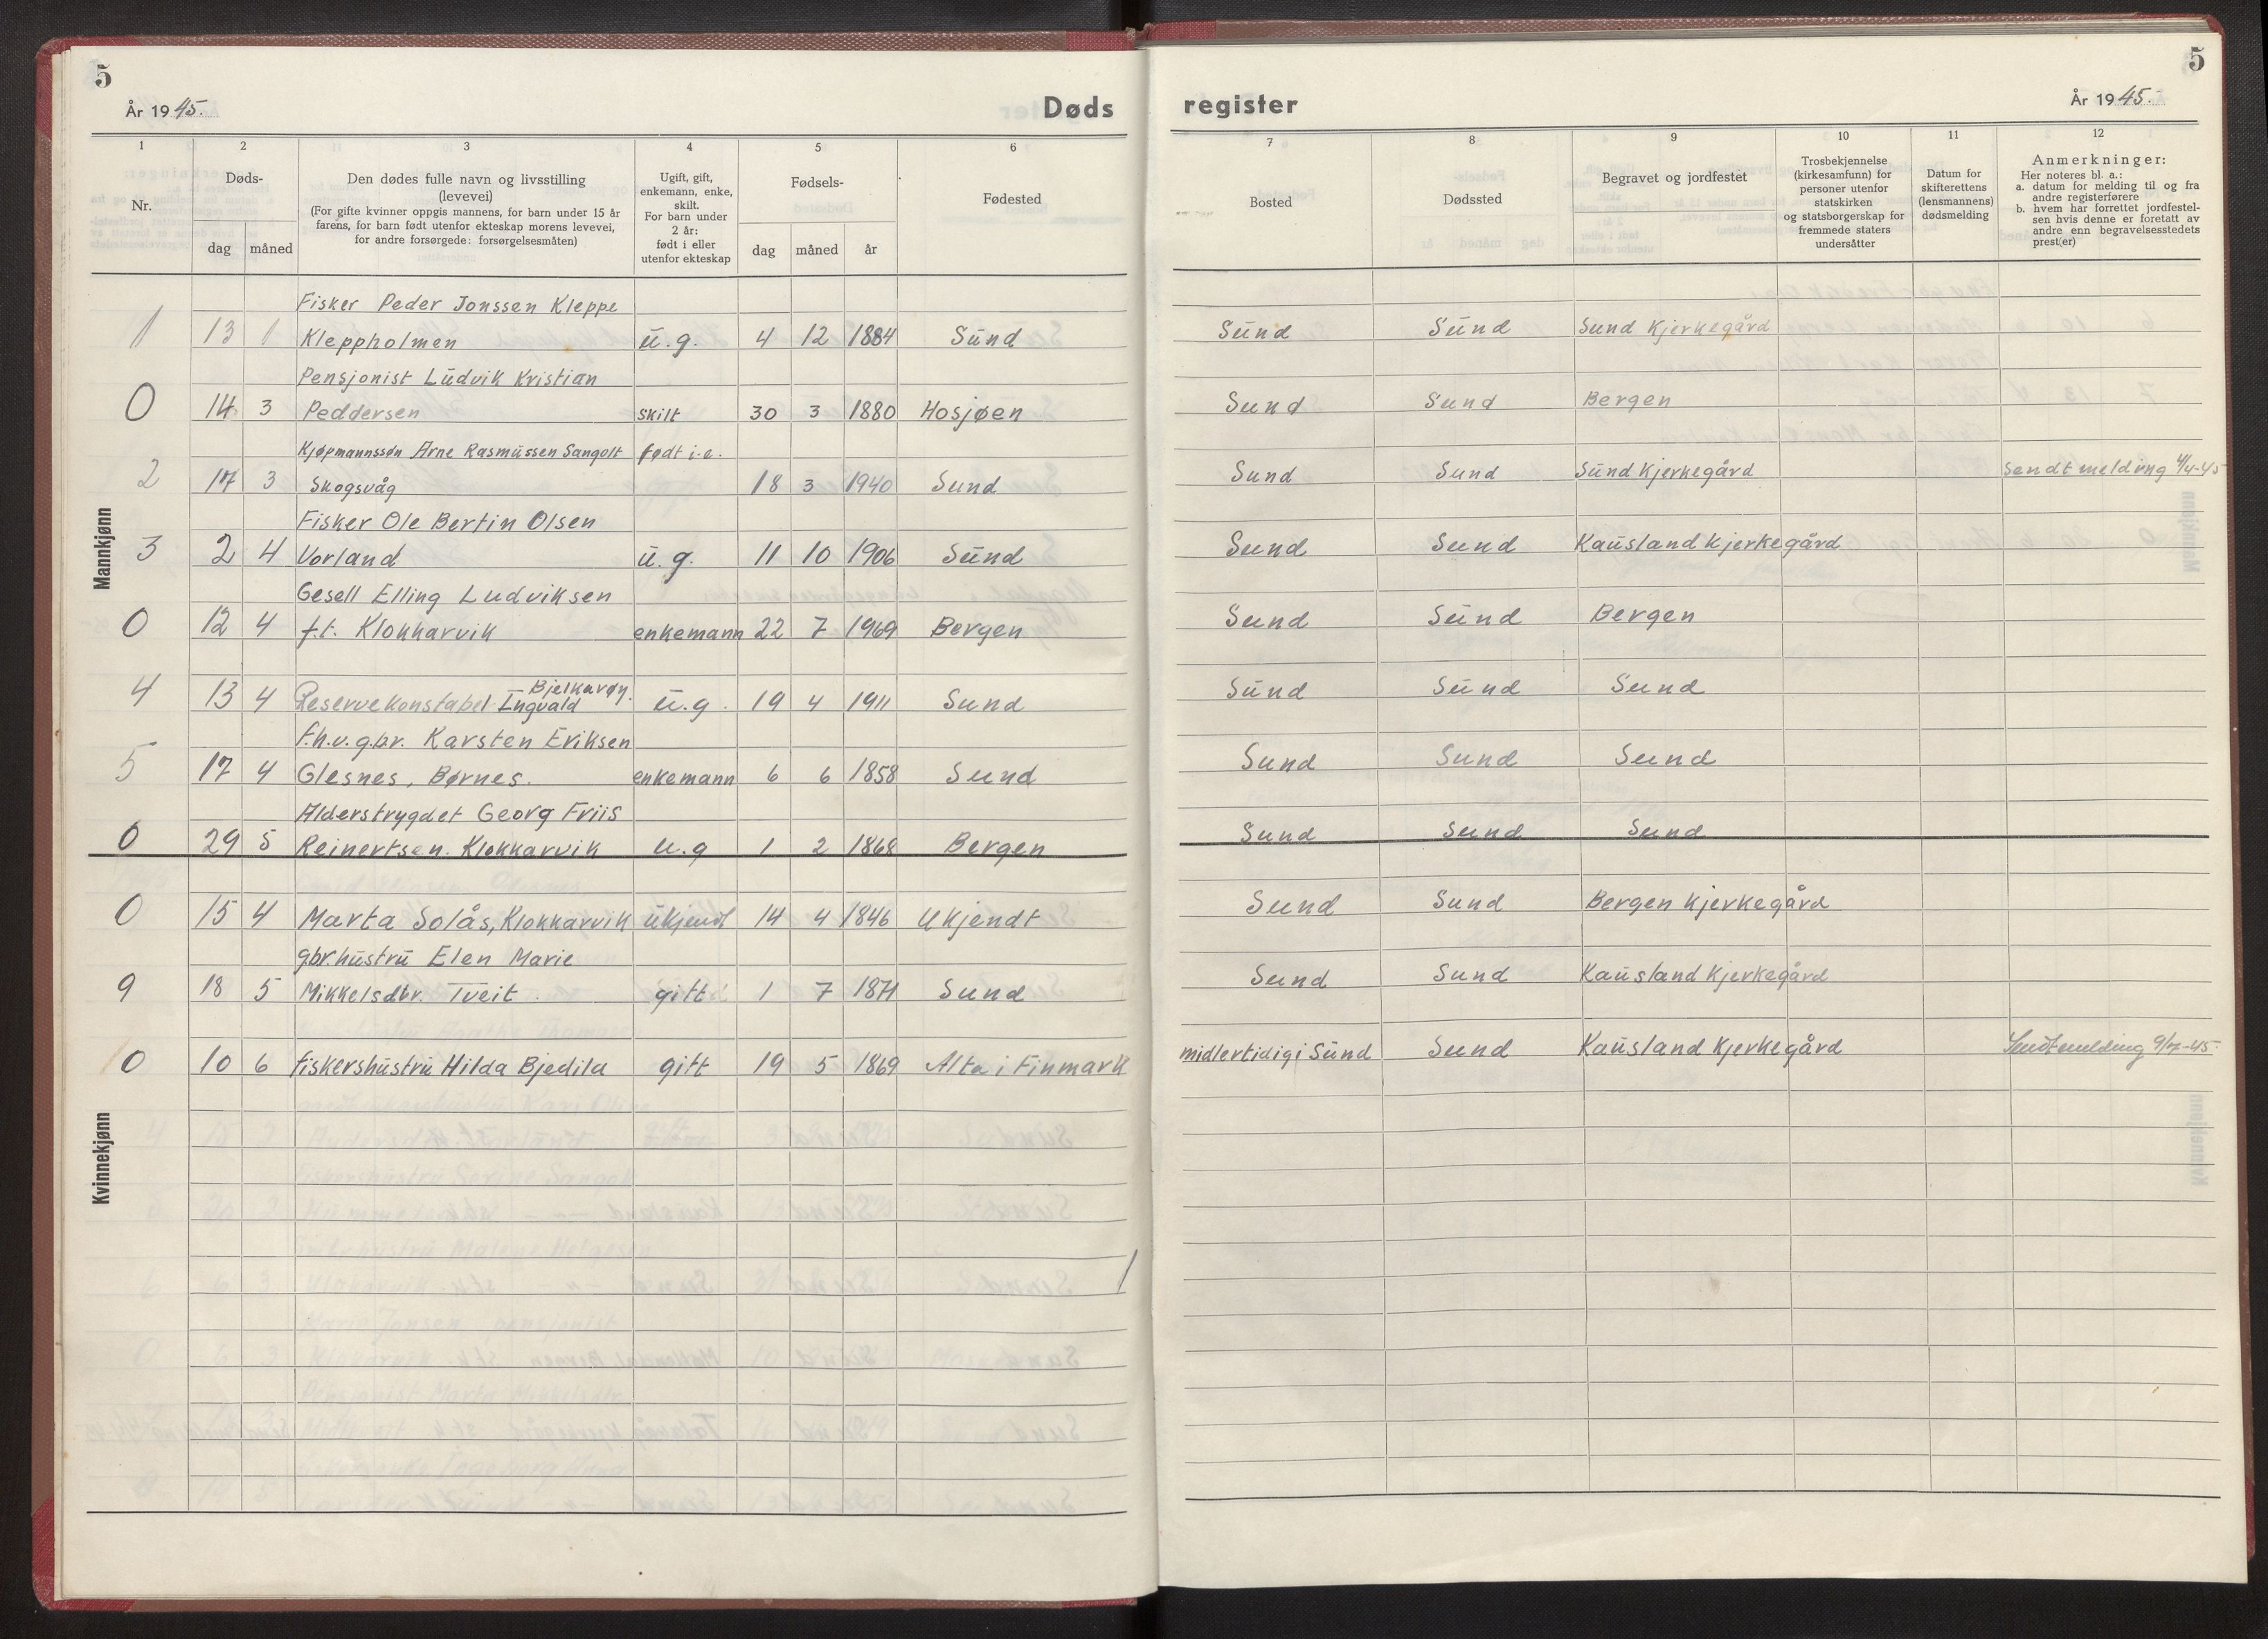 5
År 1945.
Døds
1 2 3 4 5 6
Nr.
Døds-
dag måned
Den dødes fulle navn og livsstilling
(levevei)
(For gifte kvinner oppgis mannens, for barn under 15 år
farens, for barn født utenfor ekteskap morens levevei,
for andre forsørgede: forsørgelsesmåten)
Ugift, gift,
enkemann, enke,
skilt.
For barn under
2 år:
født i eller
utenfor ekteskap
Fødsels-
dag måned år
Fødested
Mannkjønn
Fisker Peder Jonssen Kleppe
1 13 1 Kleppholmen u.g. 4 12 1884 Sund
Pensjonist Ludvik Kristian
0 14 3 Peddersen skilt 30 3 1880 Hosjøen
Kjøpmannssøn Arne Rasmussen Sangolt født i.e.
2 17 3 Skogsvåg 18 3 1940 Sund
Fisker Ole Bertin Olsen
3 2 4 Vorland u.g. 11 10 1906 Sund
Gesell Elling Ludviksen
0 12 4 f.t. Klokkarvik enkemann 22 7 1969 Bergen
Bjelkarøy.
4 13 4 Reservekonstabel Ingvald u.g. 19 4 1911 Sund
F.h.v.gbr. Karsten Eriksen
5 17 4 Glesnes, Børnes. enkemann 6 6 1858 Sund
Alderstrygdet Georg Friis
0 29 5 Reinertsen. Klokkarvik u.g 1 2 1868 Bergen
Kvinnekjønn
0 15 4 Marta Solås, Klokkarvik ukjendt 14 4 1846 Ukjendt
gbr.hustru Elen Marie
9 18 5 Mikkelsdtr. Tveit. gift 1 7 1871 Sund
10 10 6 fiskershustru Hilda Bjedila gift 19 5 1869 Alta i Finmark
5
register
År 1945.
7 8 9 10 11 12
Bosted
Dødssted
Begravet og jordfestet
Trosbekjennelse
(kirkesamfunn) for
personer utenfor
statskirken
og statsborgerskap for
fremmede staters
undersåtter
Datum for
skifterettens
(lensmannens)
dødsmelding
Anmerkninger:
Her noteres bl. a.:
a. datum for melding til og fra
andre registerførere
b. hvem har forrettet jordfestel-
sen hvis denne er foretatt av
andre enn begravelsesstedets
prest(er)
Sund Sund Sund Kjerkegård
Sund Sund Bergen
Sund Sund Sund Kjerkegård Sendt melding 4/4-45
Sund Sund Kausland Kjerkegård
Sund Sund Bergen
Sund Sund Sund
Sund Sund Sund
Sund Sund Sund
Sund Sund Bergen Kjerkegård
Sund Sund Kausland Kjerkegård
midlertidig i Sund Sund Kausland Kjerkegård Sendt melding 9/7-45.